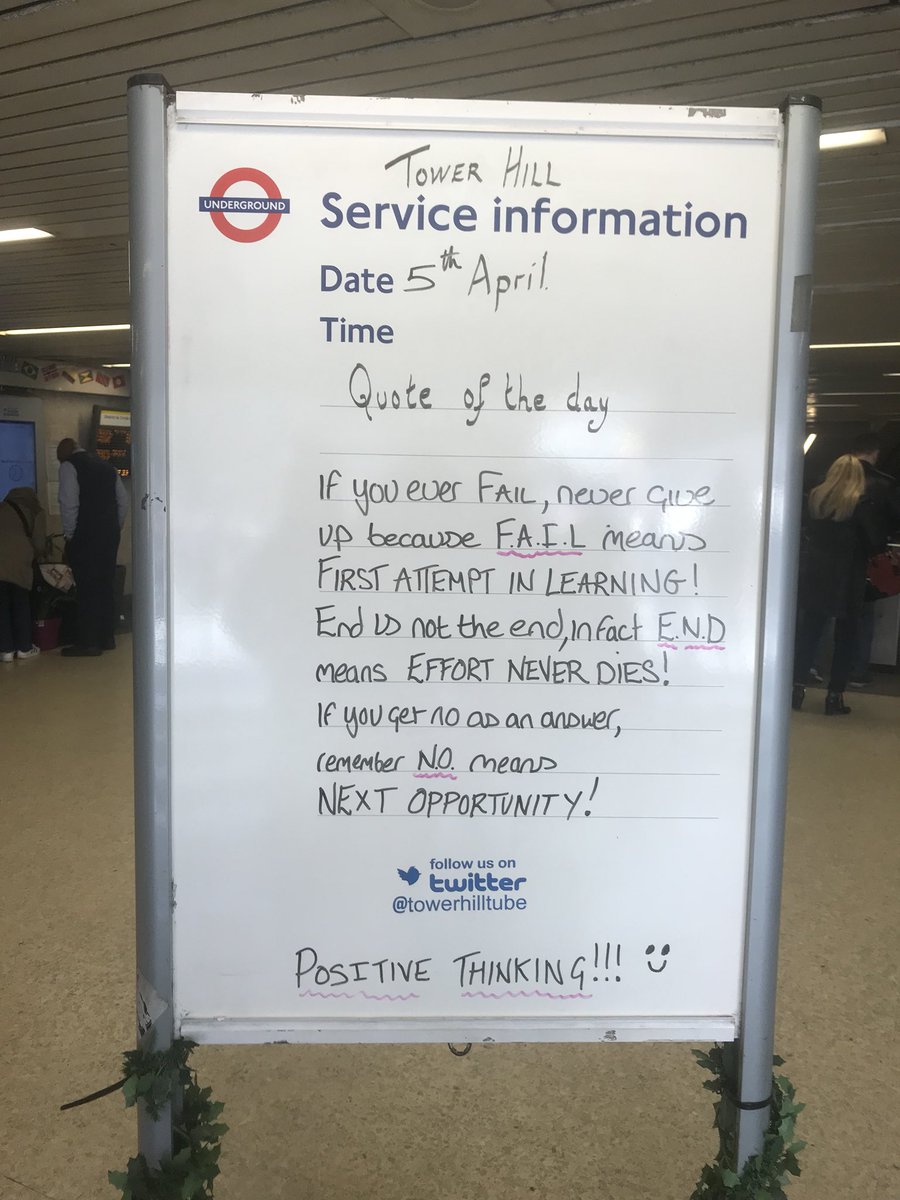 TOWER HILL
UNDERGROUND
Service information
Date 5th April.
Time
Quote of the day
If you ever FAIL, never give
up because F.A.I.L means
FIRST ATTEMPT IN LEARNING!
End is not the end, in fact E.N.D
means EFFORT NEVER DIES!
If you get no as an answer,
remember N.O. means
NEXT OPPORTUNITY!
follow us on
twitter
@towerhilltube
POSITIVE THINKING!!!